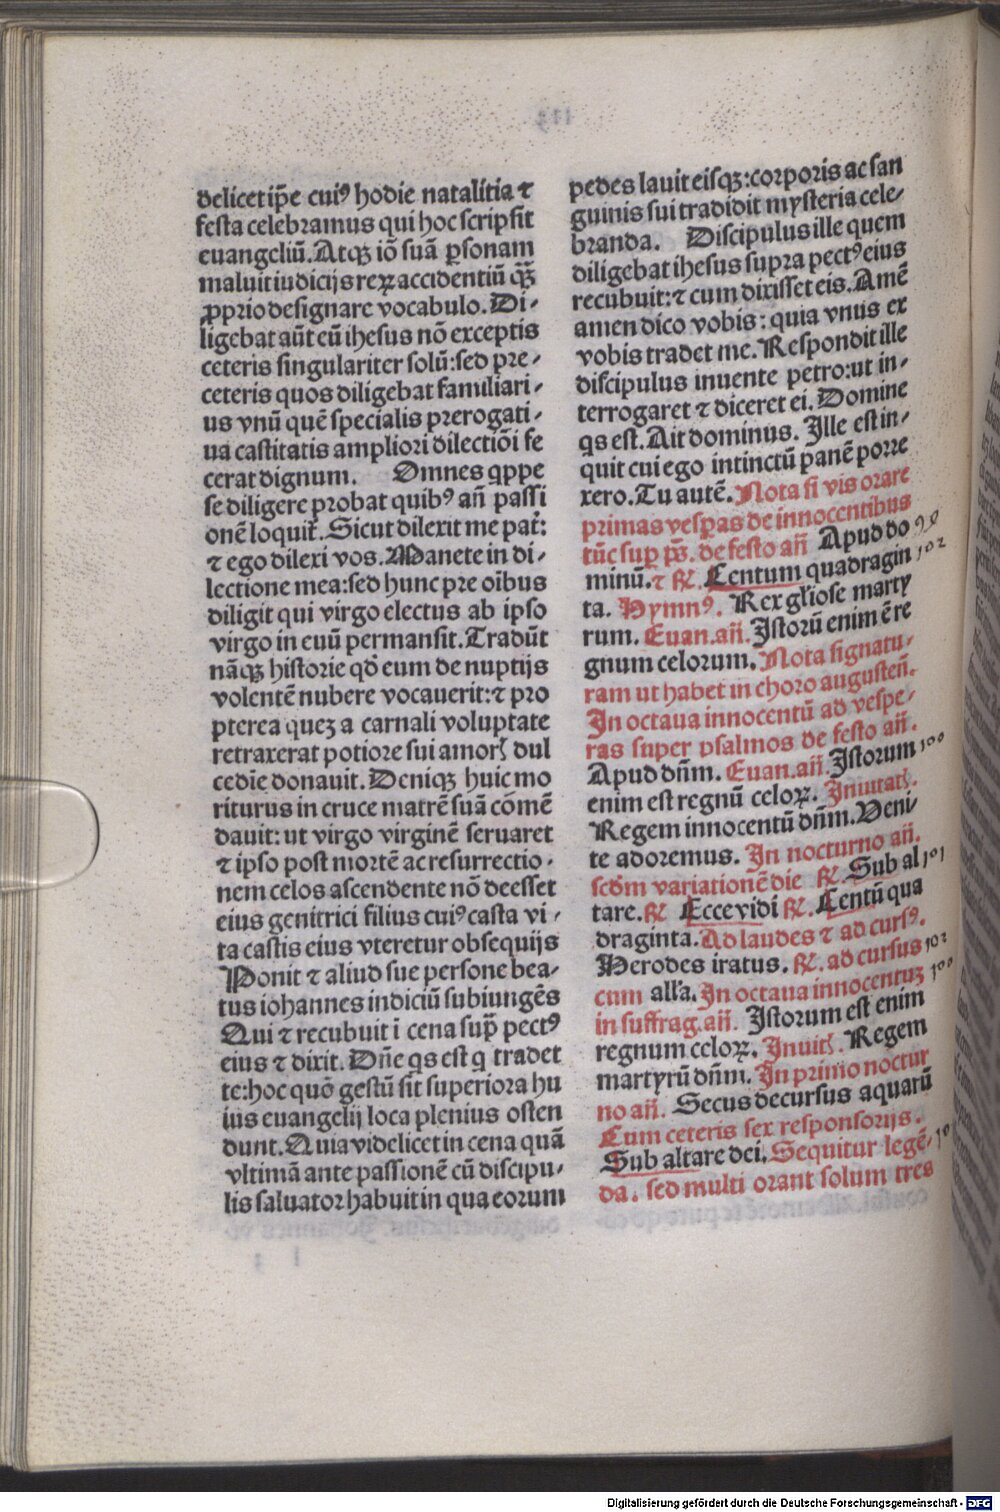 delicet ip̄e cuiꝰ hodie natalitia ⁊
festa celebramus qui hoc scripsit
euangeliū. Atqꝫ iō suā ꝑsonam
maluit iudicijs reꝝ accidentiū qꝫ̄
ꝓprio designare vocabulo. Di-
ligebat aūt eū ihesus nō exceptis
ceteris singulariter solū: sed pre-
ceteris quos diligebat familiari-
us vnū quē specialis prerogati-
ua castitatis ampliori dilectiōi fe
cerat dignum. Omnes qꝑpe
se diligere probat quibꝰ añ passi
onē loquit̄. Sicut dilexit me pat̄:
⁊ ego dilexi vos. Manete in di-
lectione mea: sed hunc pre oībus
diligit qui virgo electus ab ipso
virgo in euū permansit. Tradūt
nāqꝫ historie qd̓ eum de nuptijs
volentē nubere vocauerit: ⁊ pro
pterea quez a carnali voluptate
retraxerat potiore sui amorꝭ dul
cedīe donauit. Deniqꝫ huic mo
riturus in cruce matrē suā cōmē
dauit: ut virgo virginē seruaret
⁊ ipso post mortē ac resurrectio-
nem celos ascendente nō deesset
eius genitrici filius cuiꝰ casta vi-
ta castis eius vteretur obsequijs
Ponit ⁊ aliud sue persone bea-
tus iohannes indiciū subiungēs
Qui ⁊ recubuit ī cena sup̄ pectꝰ
eius ⁊ dixit. Dn̄e qs est q tradet
te: hoc quō gestū sit superiora hu
ius euangelij loca plenius osten
dunt. Quia videlicet in cena quā
vltimā ante passionē cū discipu-
lis saluator habuit in qua eorum
pedes lauit eisqꝫ: corporis ac san
guinis sui tradidit mysteria cele-
branda. Discipulus ille quem
diligebat ihesus supra pectꝰ eius
recubuit: ⁊ cum dixisset eis. Amē
amen dico vobis: quia vnus ex
vobis tradet me. Respondit ille
discipulus inuente petro: ut in-
terrogaret ⁊ diceret ei. Domine
qs est. Ait dominus. Ille est in-
quit cui ego intinctū panē porre
xero. Tu autē. Nota si vis orare
primas vesꝑas de innocentibus
tūc sup̱ p̄s. de festo añ Apud do 98
minū. ⁊ ℟. Centum quadragin 102
ta. Hymnꝰ. Rex gl̄iose marty
rum. Euan. añ. Istorū enim ē re
gnum celorum. Nota signatu-
ram ut habet in choro augusteñ.
In octaua innocentū ad vespe-
ras super psalmos de festo añ.
Apud dn̄m. Euan. añ. Istorum 100
enim est regnū celoꝝ. Inuitatꝭ.
Regem innocentū dn̄m. Veni
te adoremus. In nocturno añ.
scd̄m variationē die ℟. Sub al 101
tare. ℟ Ecce vidi ℟. Centū qua
draginta. Ad laudes ⁊ ad cursꝰ.
Herodes iratus. ℟. ad cursus 102
cum all'a. In octaua innocentuꝫ 100
in suffrag. añ. Istorum est enim
regnum celoꝝ. Inuitꝭ. Regem
martyrū dn̄m. In primo noctur
no añ. Secus decursus aquarū
Cum ceteris sex responsorijs.
Sub altare dei. Sequitur legē-
da. sed multi orant solum tres
Digitalisierung gefördert durch die Deutsche Forschungsgemeinschaft - DFG